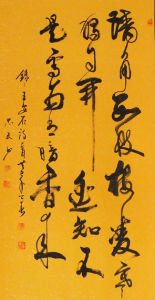 墙角数枝梅凌寒
独自开遥知不
是雪为有暗香来
录王安石诗